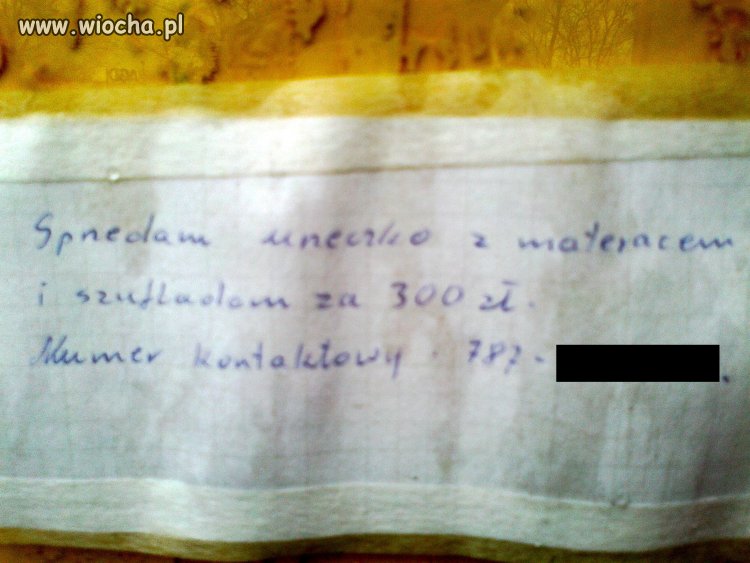 www.wiocha.pl
Spnedam uneczko z materacem
i szufladom za 300 zł.
Numer kontaktowy · 787-